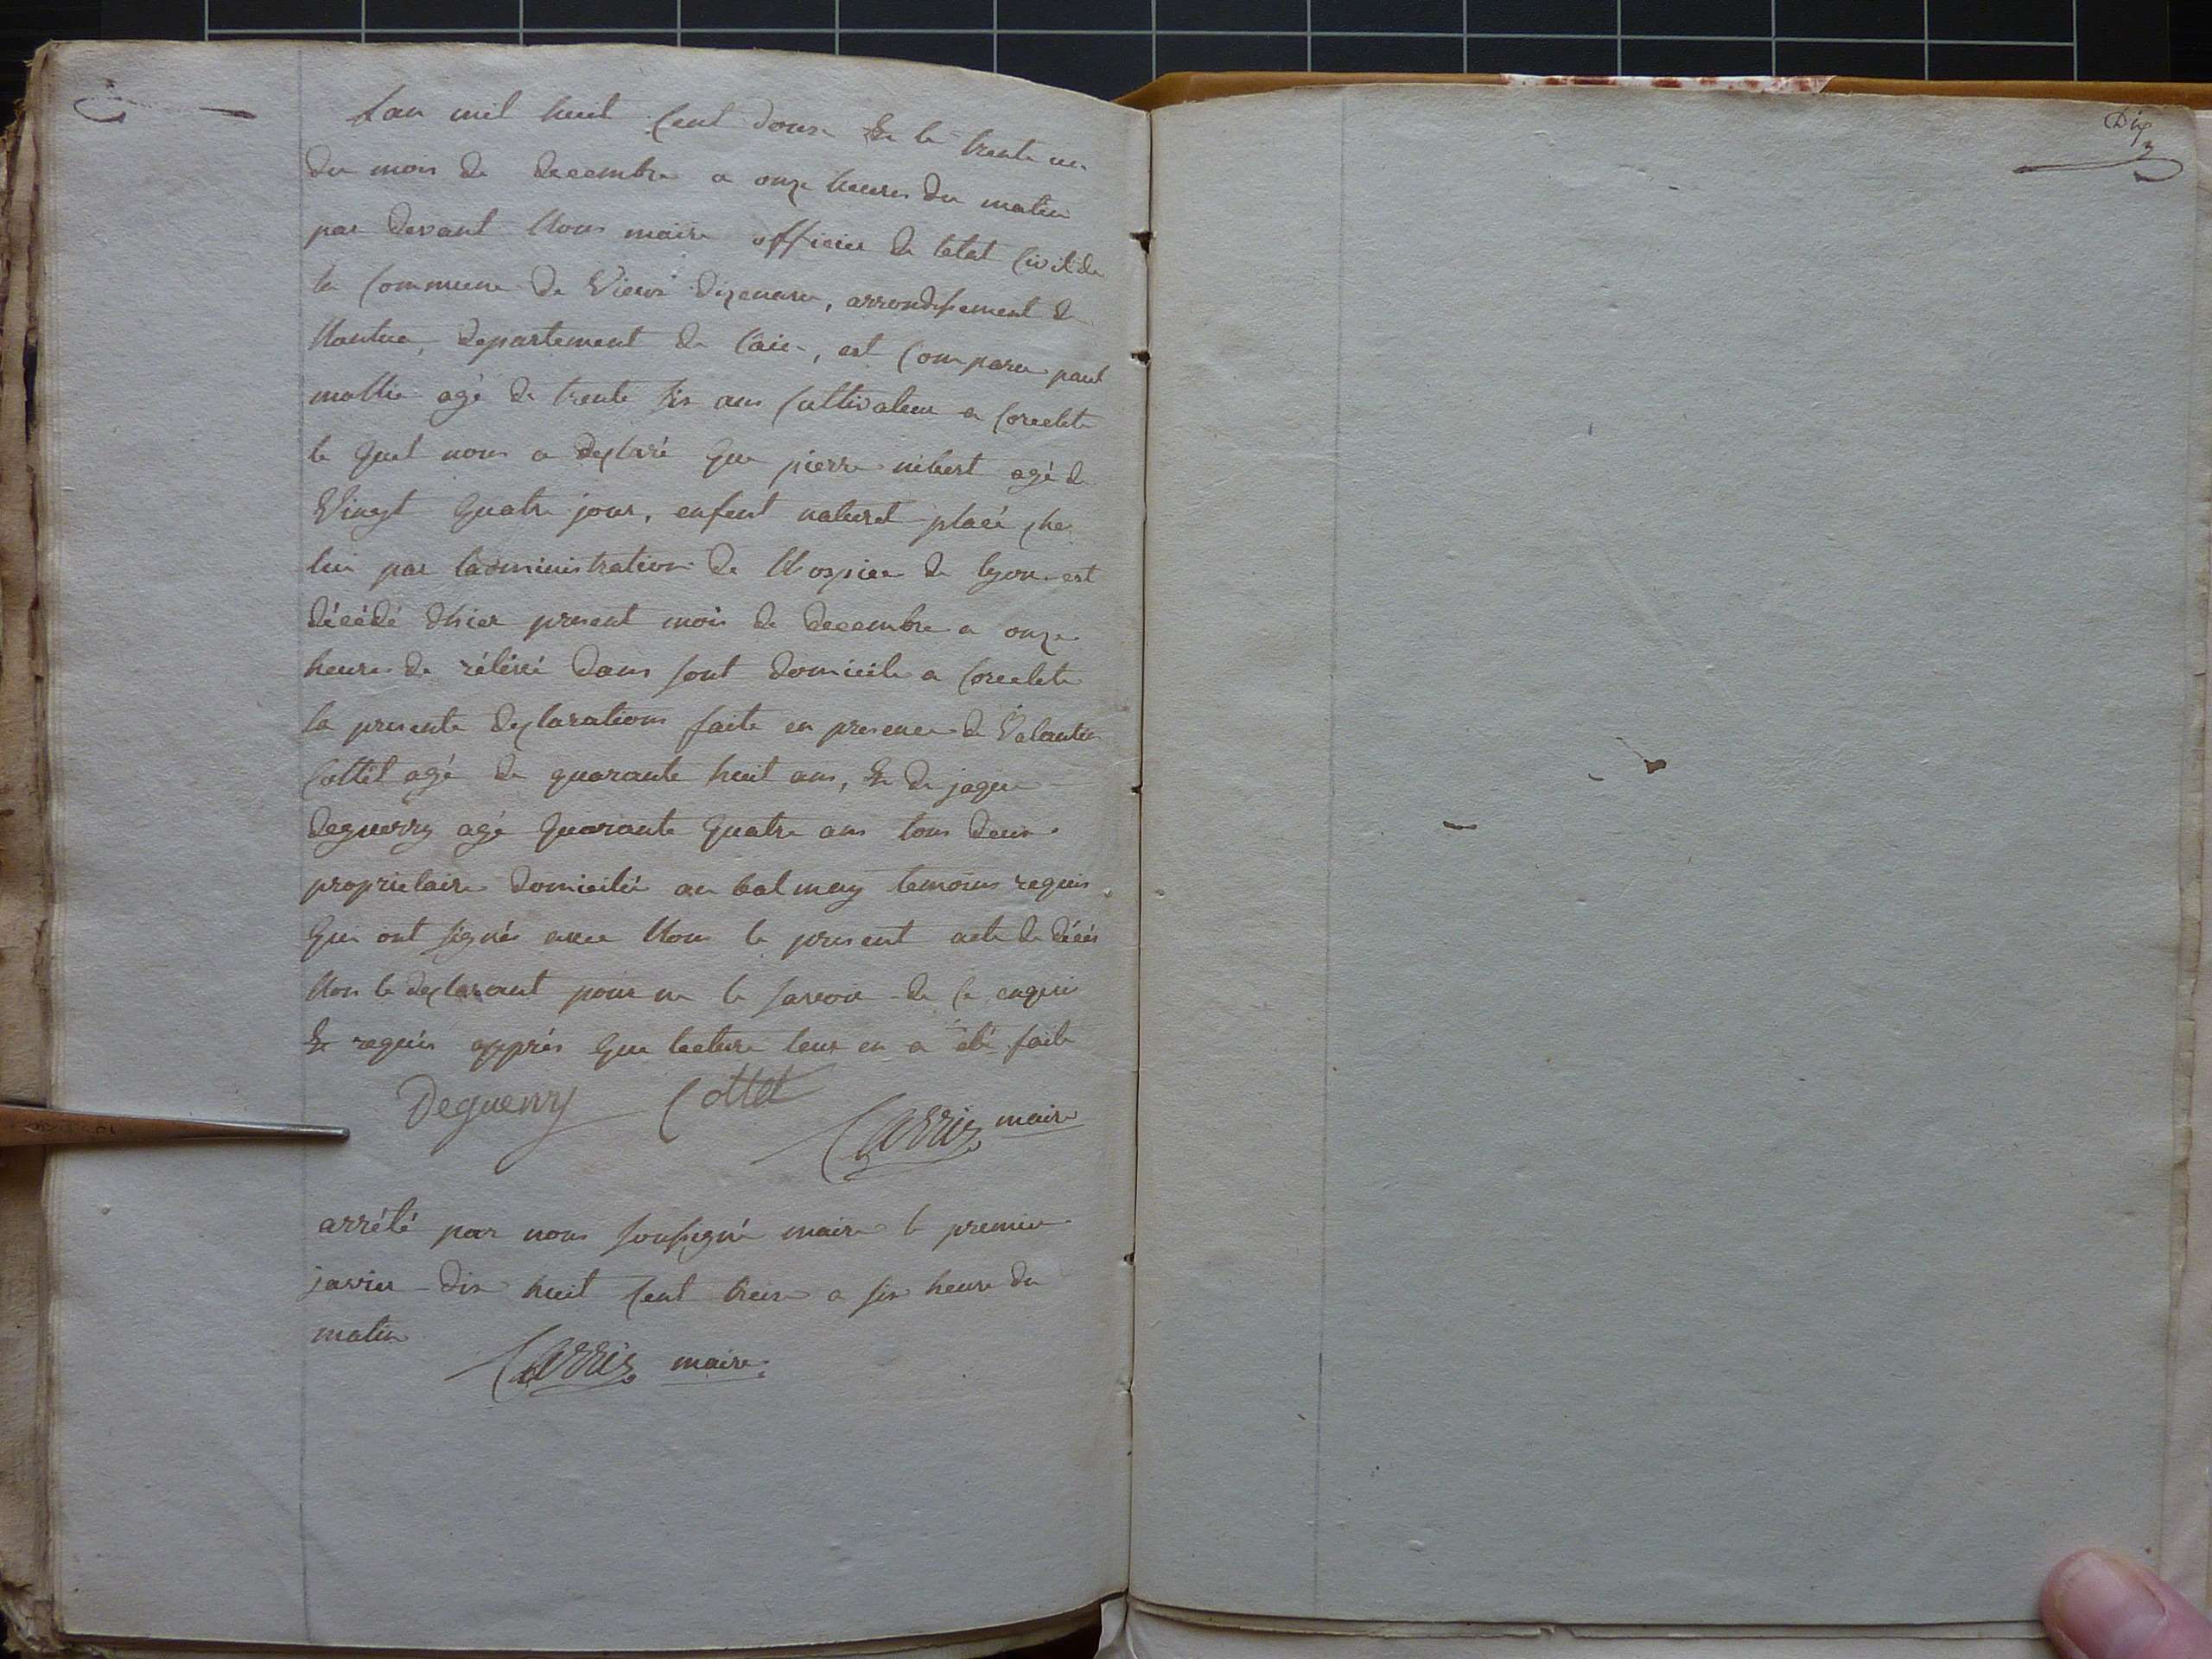 Lan mil huit Cent douse & le trente un
du mois de decembre a onze heures du matin
par devant Nous maire officier de letat Civil de
la Commune de Vieux dizenave, arrondissement de
Nantua, departement de l'ain, est Comparu paul
mollie agé de trente six ans Cultivateur a Corcelete
le quel nous a declaré que pierre nibert agé de
Vingt quatre jour, enfent naturel placé che
lui par l'administration de Lhospice de lyon est
décédé dhier present mois de decembre a onze
heures de rélévé dans sont domicile a Corcelete
la presente declarations faite en presence de Valantin
Cottet agé de quarante huit ans, & de jaque
deguerry agé quarante quatre ans tous deux
proprietaire domicilié au balmay temoins requis
qui ont signés avec Nous le present acte de décés
Non le declarant pour ne le savoir de ce enquis
& requis apprés que lecture leur en a été faite
Deguerry Cottet
Carrier maire
arrété par nous soussigné maire le premier
javier dix huit Cent treise a six heure du
matin
Carrier maire
Dix